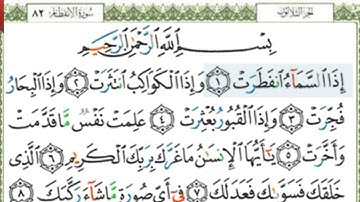 الجزء الثلاثون
سورة الانفطار ٨٢
بِسْمِ اللَّهِ الرَّحْمَٰنِ الرَّحِيمِ
إِذَا السَّمَاءُ انفَطَرَتْ ١ وَإِذَا الْكَوَاكِبُ انتَثَرَتْ ٢ وَإِذَا الْبِحَارُ
فُجِّرَتْ ٣ وَإِذَا الْقُبُورُ بُعْثِرَتْ ٤ عَلِمَتْ نَفْسٌ مَّا قَدَّمَتْ
وَأَخَّرَتْ ٥ يَا أَيُّهَا الْإِنسَانُ مَا غَرَّكَ بِرَبِّكَ الْكَرِيمِ ٦ الَّذِي
خَلَقَكَ فَسَوَّاكَ فَعَدَلَكَ ٧ فِي أَيِّ صُورَةٍ مَّا شَاءَ رَكَّبَكَ ٨